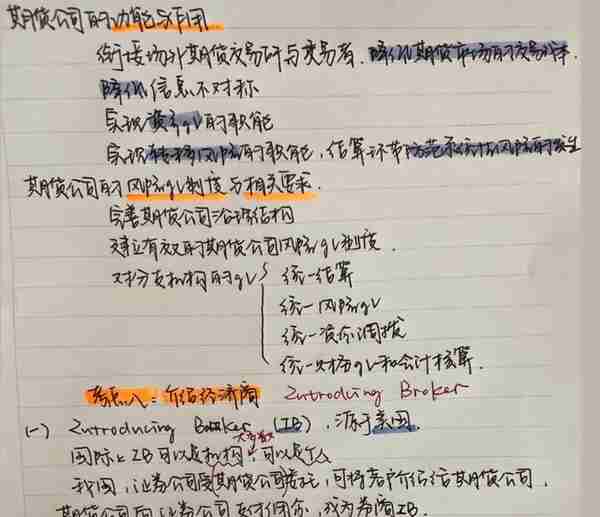 期货公司的功能与作用
衔接场外期货交易所与交易者，降低期货市场的交易成本.
降低信息不对称
实现资产gl的职能
实现转移风险的职能，结算环节防范系统性风险的发生
期货公司的风险gl制度与相关要求.
完善期货公司治理结构
建立有效的期货公司风险gl制度.
对分支机构的gl
统一结算
统一风险gl
统一资金调拨
统一财务gl和会计核算.
考点八：介绍经济商 Introducing Broker
(一) Introducing Broker (IB)，源于美国.
大多数
国际上IB可以是机构，可以是个人
我国，证券公司受期货公司委托，可将客户介绍给期货公司，
期货公司向证券公司支付佣金，成为券商IB.